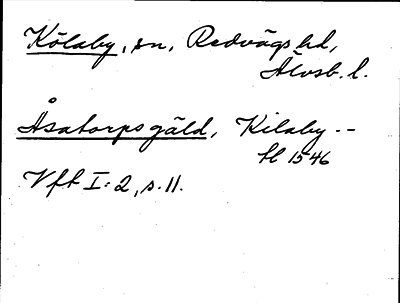 Kölaby, sn, Redvägs hd,
Älvsb. l.
Åsatorpsgäld, Kilaby --
H 1546
Vft I: 2, s. 11.